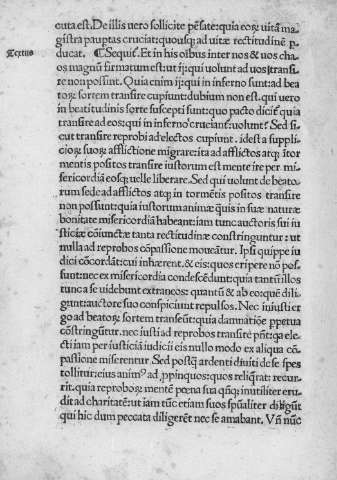 cuta est. De illis vero sollicite pẽsate: quia eoꝝ vitã ma
gistra pauptas cruciat: quousqꝫ ad vitæ rectitudinẽ p
Textus
ducat. ¶ Sequit̃. Et in his oĩbus inter nos & uos cha
os magnũ firmatum est: ut ij: qui volunt ad uos trãsi
re non possunt. Quia enim ij: qui in inferno sunt: ad bea
toꝝ sortem transire cupiunt: dubium non est. qui uero
in beatitudinis sorte suscepti sunt: quo pacto dicit̃ quia
transire ad eos: qui in inferno cruciant̃: uolunt? Sed si
cut transire reprobi ad electos cupiunt. idest a suppli
cioꝝ suoꝝ afflictione migrare: ita ad afflictos atqꝫ ĩtor
mentis positos transire iustorum est mente ire per mi
sericordiã eosqꝫ uelle liberare. Sed qui uolunt de beato
rum sede ad afflictos atqꝫ in tormẽtis positos transire
non possunt: quia iustorum animæ quis in suæ naturæ
bonitate misericordiã habeant: iam tunc auctoris sui iu
sticiæ cõiunctæ tanta rectitudinæ constringuntur: ut
nulla ad reprobos cõpassione moueãtur. Ipsi quippe iu
dici cõcordãt: cui inhærent. & eis: quos eripere nõ pos
sunt: nec ex misericordia condescẽdunt: quia tantũ illos
tunc a se uidebunt extraneos: quantũ & ab eo: quẽ dili
gunt: auctore suo conspiciunt repulsos. Nec iniusti er
go ad beatoꝝ sortem transeũt: quia damnatiõe ppetua
cõstringũtur. nec iusti ad reprobos transire põt: qa ele
cti iam per iusticiã iudicii eis nullo modo ex aliqua cõ
passione miserentur. Sed postqꝫ ardenti diuiti de se spes
tollitur: eius animꝰ ad ꝓpinquos: quos reliqrat: recur
rit. quia reproboꝝ mentẽ pœna sua qñqꝫ inutiliter eru
dit ad charitatẽ: ut iam tũc etiam suos spũaliter diligãt
qui hic dum peccata diligerẽt nec se amabant. Vñ nũc